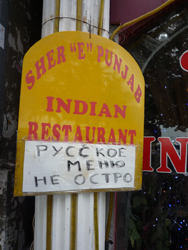 SHER "E" PUNJAB
INDIAN
RESTAURANT
РУССКОЕ
МЕНЮ
НЕ ОСТРО
IN